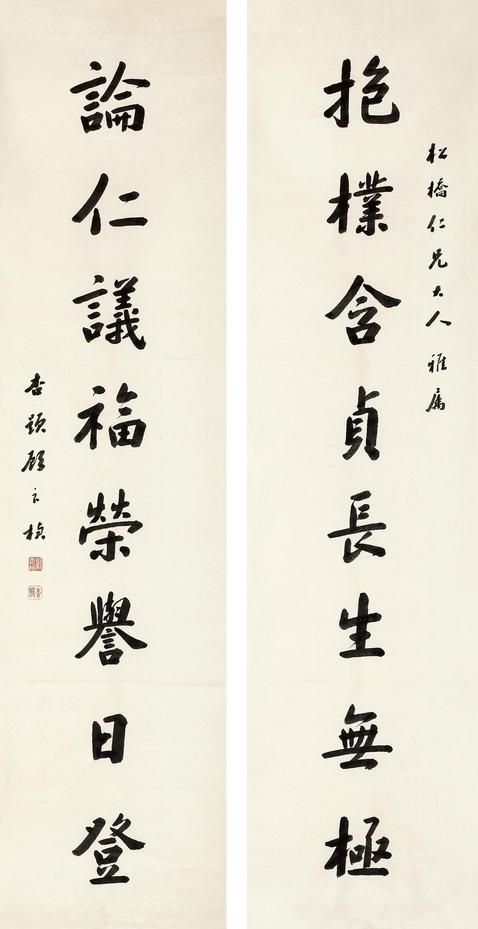 松橋仁兄大人雅屬
抱樸含貞長生無極
論仁議福榮譽日登
杏題顧言楨